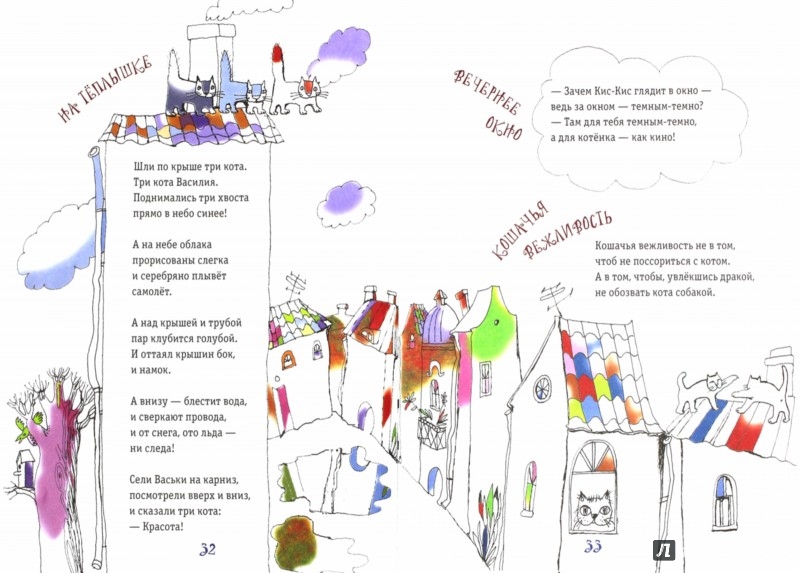 НА ТЁПЛЫШКЕ
Шли по крыше три кота.
Три кота Василия.
Поднимались три хвоста
прямо в небо синее!
А на небе облака
прорисованы слегка
и серебряно плывёт
самолёт.
А над крышей и трубой
пар клубится голубой.
И оттаял крышин бок,
и намок.
А внизу — блестит вода,
и сверкают провода,
и от снега, ото льда —
ни следа!
Сели Васьки на карниз,
посмотрели вверх и вниз,
и сказали три кота:
— Красота!
32
ВЕЧЕРНЕЕ
ОКНО
— Зачем Кис-Кис глядит в окно —
ведь за окном — темным-темно?
— Там для тебя темным-темно,
а для котёнка — как кино!
КОШАЧЬЯ
ВЕЖЛИВОСТЬ
Кошачья вежливость не в том,
чтоб не поссориться с котом.
А в том, чтобы, увлёкшись дракой,
не обозвать кота собакой.
33
Л